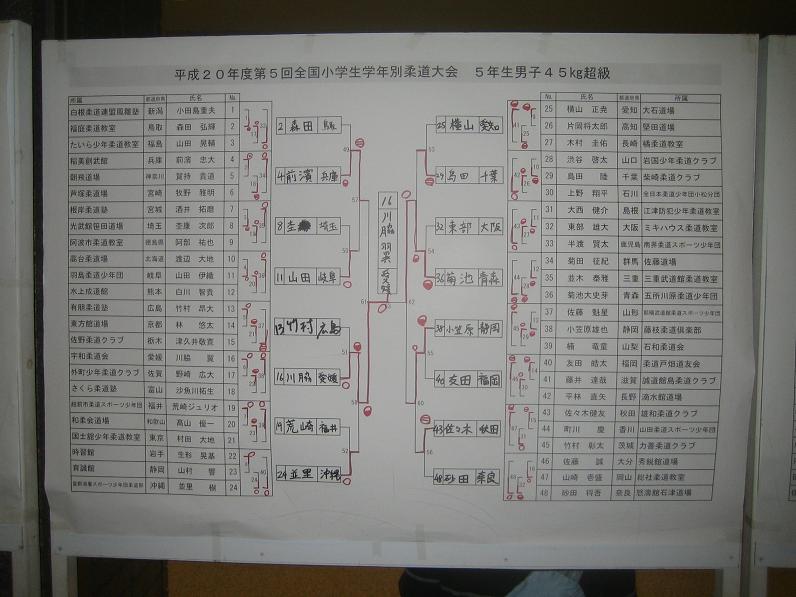 平成２０年度第５回全国小学生学年別柔道大会　５年生男子４５kg超級
所属 都道府県 氏名 No.
白根柔道連盟鳳雛塾 新潟 小田島重夫 1
福庭柔道教室 鳥取 森田 弘輝 2
たいら少年柔道教室 福島 山田 晃輔 3
稲美創武館 兵庫 前濱 忠大 4
朝飛道場 神奈川 賀持 貴道 5
芦塚柔道場 宮崎 牧野 雅明 6
根岸柔道塾 宮城 酒井 拓磨 7
光武館笹田道場 埼玉 圶康 次郎 8
阿波市柔道教室 徳島県 阿部 祐也 9
高台柔道場 北海道 渡辺 大地 10
羽島柔道少年団 岐阜 山田 伊織 11
水上成道館 熊本 白川 智貴 12
有朋柔道塾 広島 竹村 昂大 13
東方館道場 京都 林 悠太 14
佐野柔道クラブ 栃木 津久井敬査 15
宇和柔道会 愛媛 川脇 翼 16
外町少年柔道クラブ 佐賀 野崎 広大 17
さくら柔道塾 富山 沙魚川拓生 18
越前市柔道スポーツ少年団 福井 荒崎ジュリオ 19
和柔会道場 和歌山 高山 優一 20
国士舘少年柔道教室 東京 村田 大地 21
時習館 岩手 生形 晃基 22
育誠館 静岡 山村 響 23
沖縄 並里 樹 24
No. 氏名 都道府県 所属
25 横山 正尭 愛知 大石道場
26 片岡将太郎 高知 堅田道場
27 木村 圭佑 長崎 橘柔道教室
28 渋谷 啓太 山口 岩国少年柔道クラブ
29 島田 隆 千葉 柴崎柔道クラブ
30 上野 翔平 石川 全日本柔道少年団小松分団
31 大西 健介 島根 江津防犯少年柔道教室
32 東部 雄大 大阪 ミキハウス柔道教室
33 半渡 賢太 鹿児島 南界柔道スポーツ少年団
34 菊田 征紀 群馬 佐藤道場
35 並木 泰雅 三重 三重武道館柔道教室
36 菊池大史芽 青森 五所川原柔道少年団
37 佐藤 魁星 山形
38 小笠原雄也 静岡 藤枝柔道倶楽部
39 楠 竜童 山梨 石和柔道会
40 友田 皓太 福岡 柔道戸畑道友会
41 藤井 達哉 滋賀 誠道館島柔道クラブ
42 平林 直矢 長野 滴水館道場
43 佐々木健友 秋田 雄和柔道クラブ
44 町川 慶 香川 山田柔道スポーツ少年団
45 竹村 彰太 茨城 力善柔道クラブ
46 佐藤 誠 大分 秀鋭館道場
47 山崎 壱盛 岡山 総社柔道教室
48 砂田 将吾 奈良 怒濤館石津道場
2 森田 鳥取
4 前濱 兵庫
8 埼玉
11 山田 岐阜
13 竹村 広島
16 川脇 愛媛
19 荒崎 福井
24 並里 沖縄
16 川脇 羽翼 愛媛
25 横山 愛知
29 島田 千葉
32 東部 大阪
36 菊池 青森
38 小笠原 静岡
40 友田 福岡
43 佐々木 秋田
48 砂田 奈良